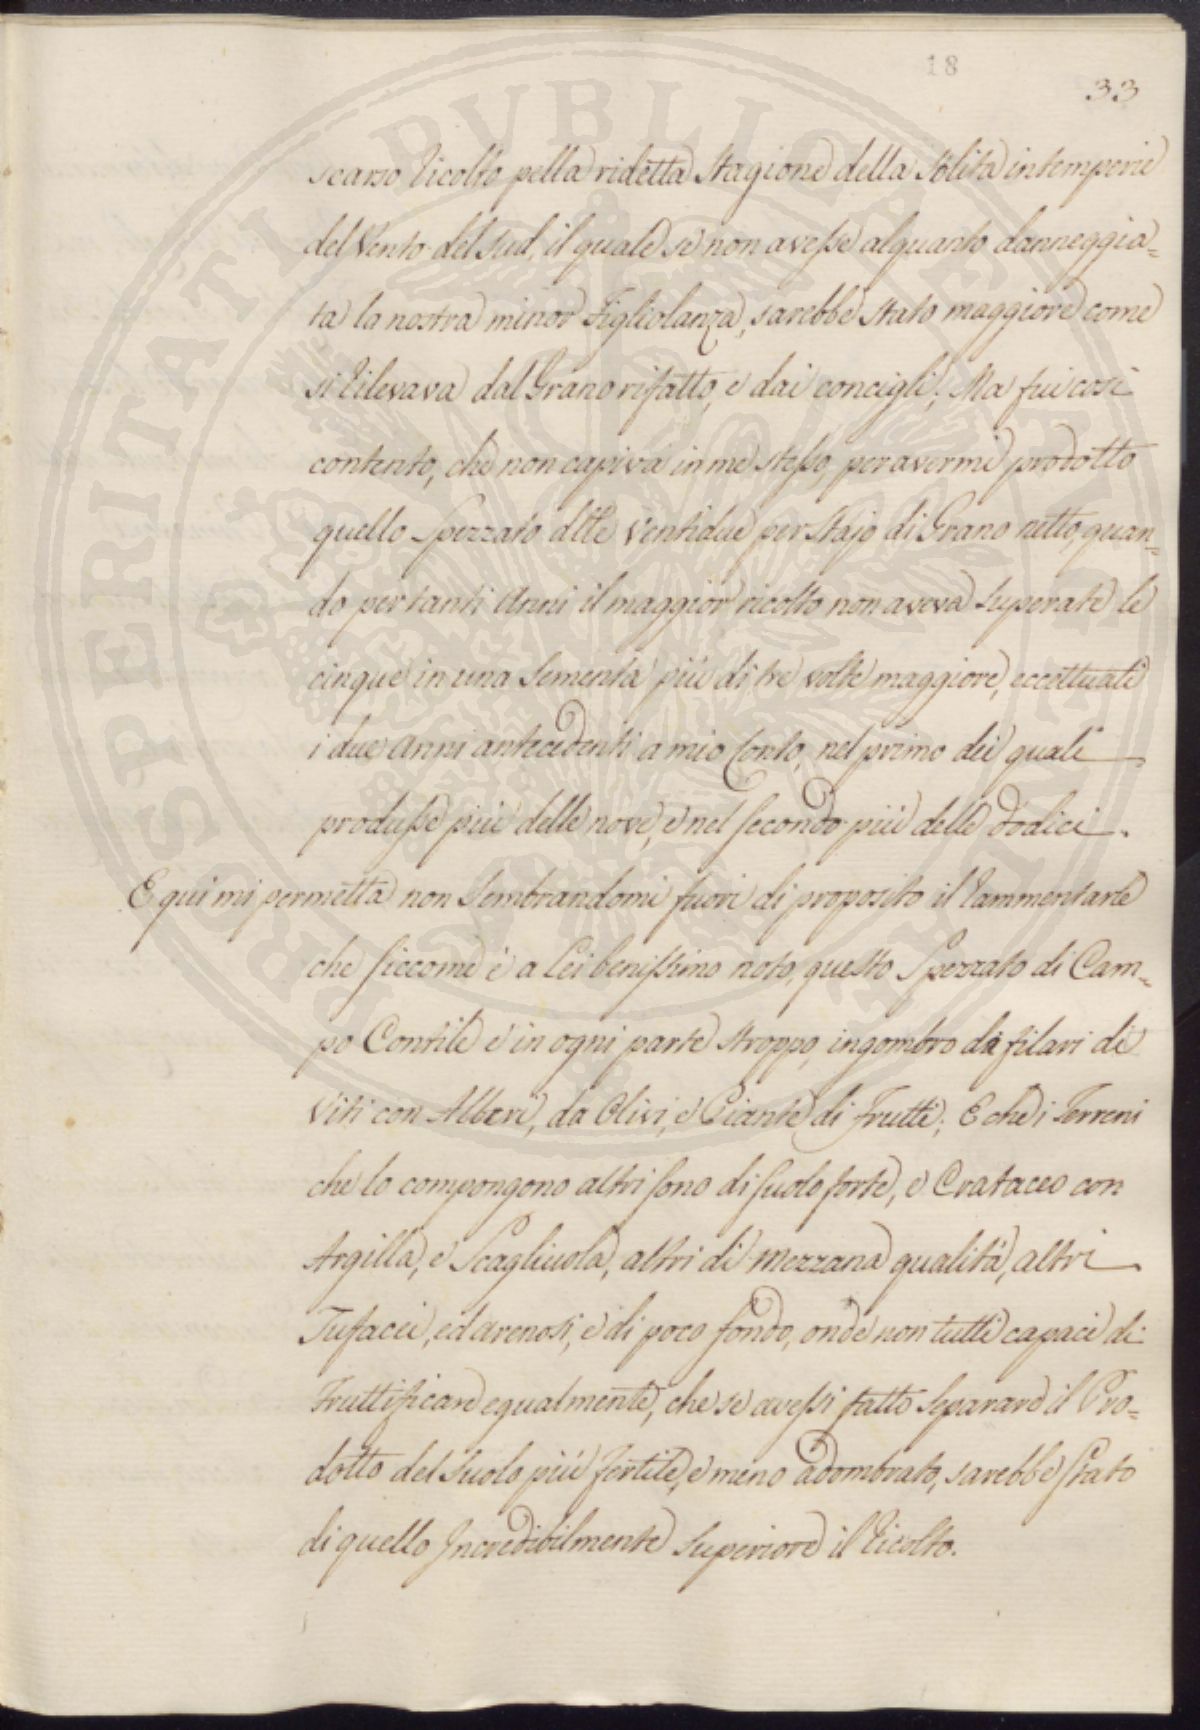 18
33
scarso Ricolto pella ridetta Stagione della Solita intemperie
del Vento del Sud, il quale se non avesse alquanto danneggia=
ta la nostra minor Figliolanza, sarebbe Stato maggiore come
si Rilevava dal Grano rifatto, e dai concigli; Ma fui così
contento, che non capiva in me stesso, per avermi prodotto
quello Spezzato dlle Ventidue per Stajo di Grano netto, quan=
do per tanti Anni il maggior ricolto non aveva Superate le
cinque in una Sementa più di tre volte maggiore, eccettuati
i due anni antecedenti a mio Conto, nel primo dei quali
produsse più delle nove, e nel secondo più delle dodici.
E qui mi permetta non Sembrandomi fuori di proposito il Rammentarle
che siccome è a Lei benissimo noto, questo Spezzato di Cam=
po Contile è in ogni parte Stroppo, ingombro da filari di
Viti con Alberi, da Olivi, e Piante di Frutti; E che i Terreni
che lo compongono altri sono di suolo forte, e Crataceo con
Argilla, e Scagliuola, altri di Mezzana qualità, altri
Tufacei, ed arenosi, e di poco fondo, onde non tutti capaci di
Fruttificare egualmente, che se avessi fatto Separare il Pro=
dotto del Suolo più fertile, e meno adombrato, sarebbe Stato
di quello Incredibilmente Superiore il Ricolto.
PROSPERITATI PUBLICAE AUGENDAE